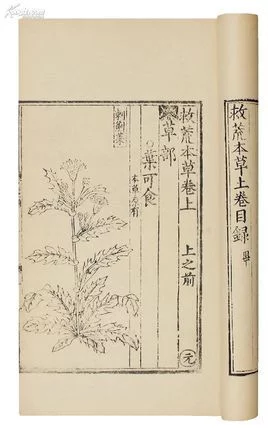 救荒本草上卷目録 畢
救荒本草卷上
上之前
草部
葉可食
本草原有
刺薊菜
元